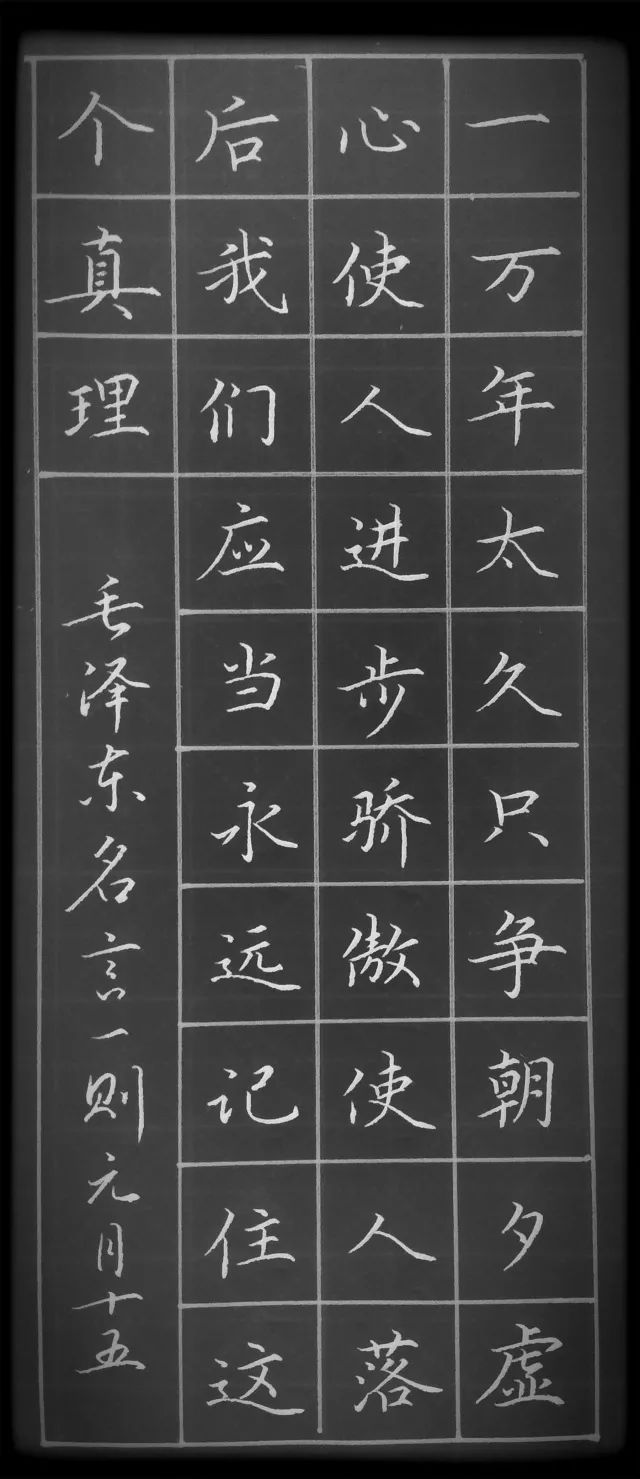 一万年太久只争朝夕虚
心使人进步骄傲使人落
后我们应当永远记住这
个真理
毛泽东名言一则元月十五